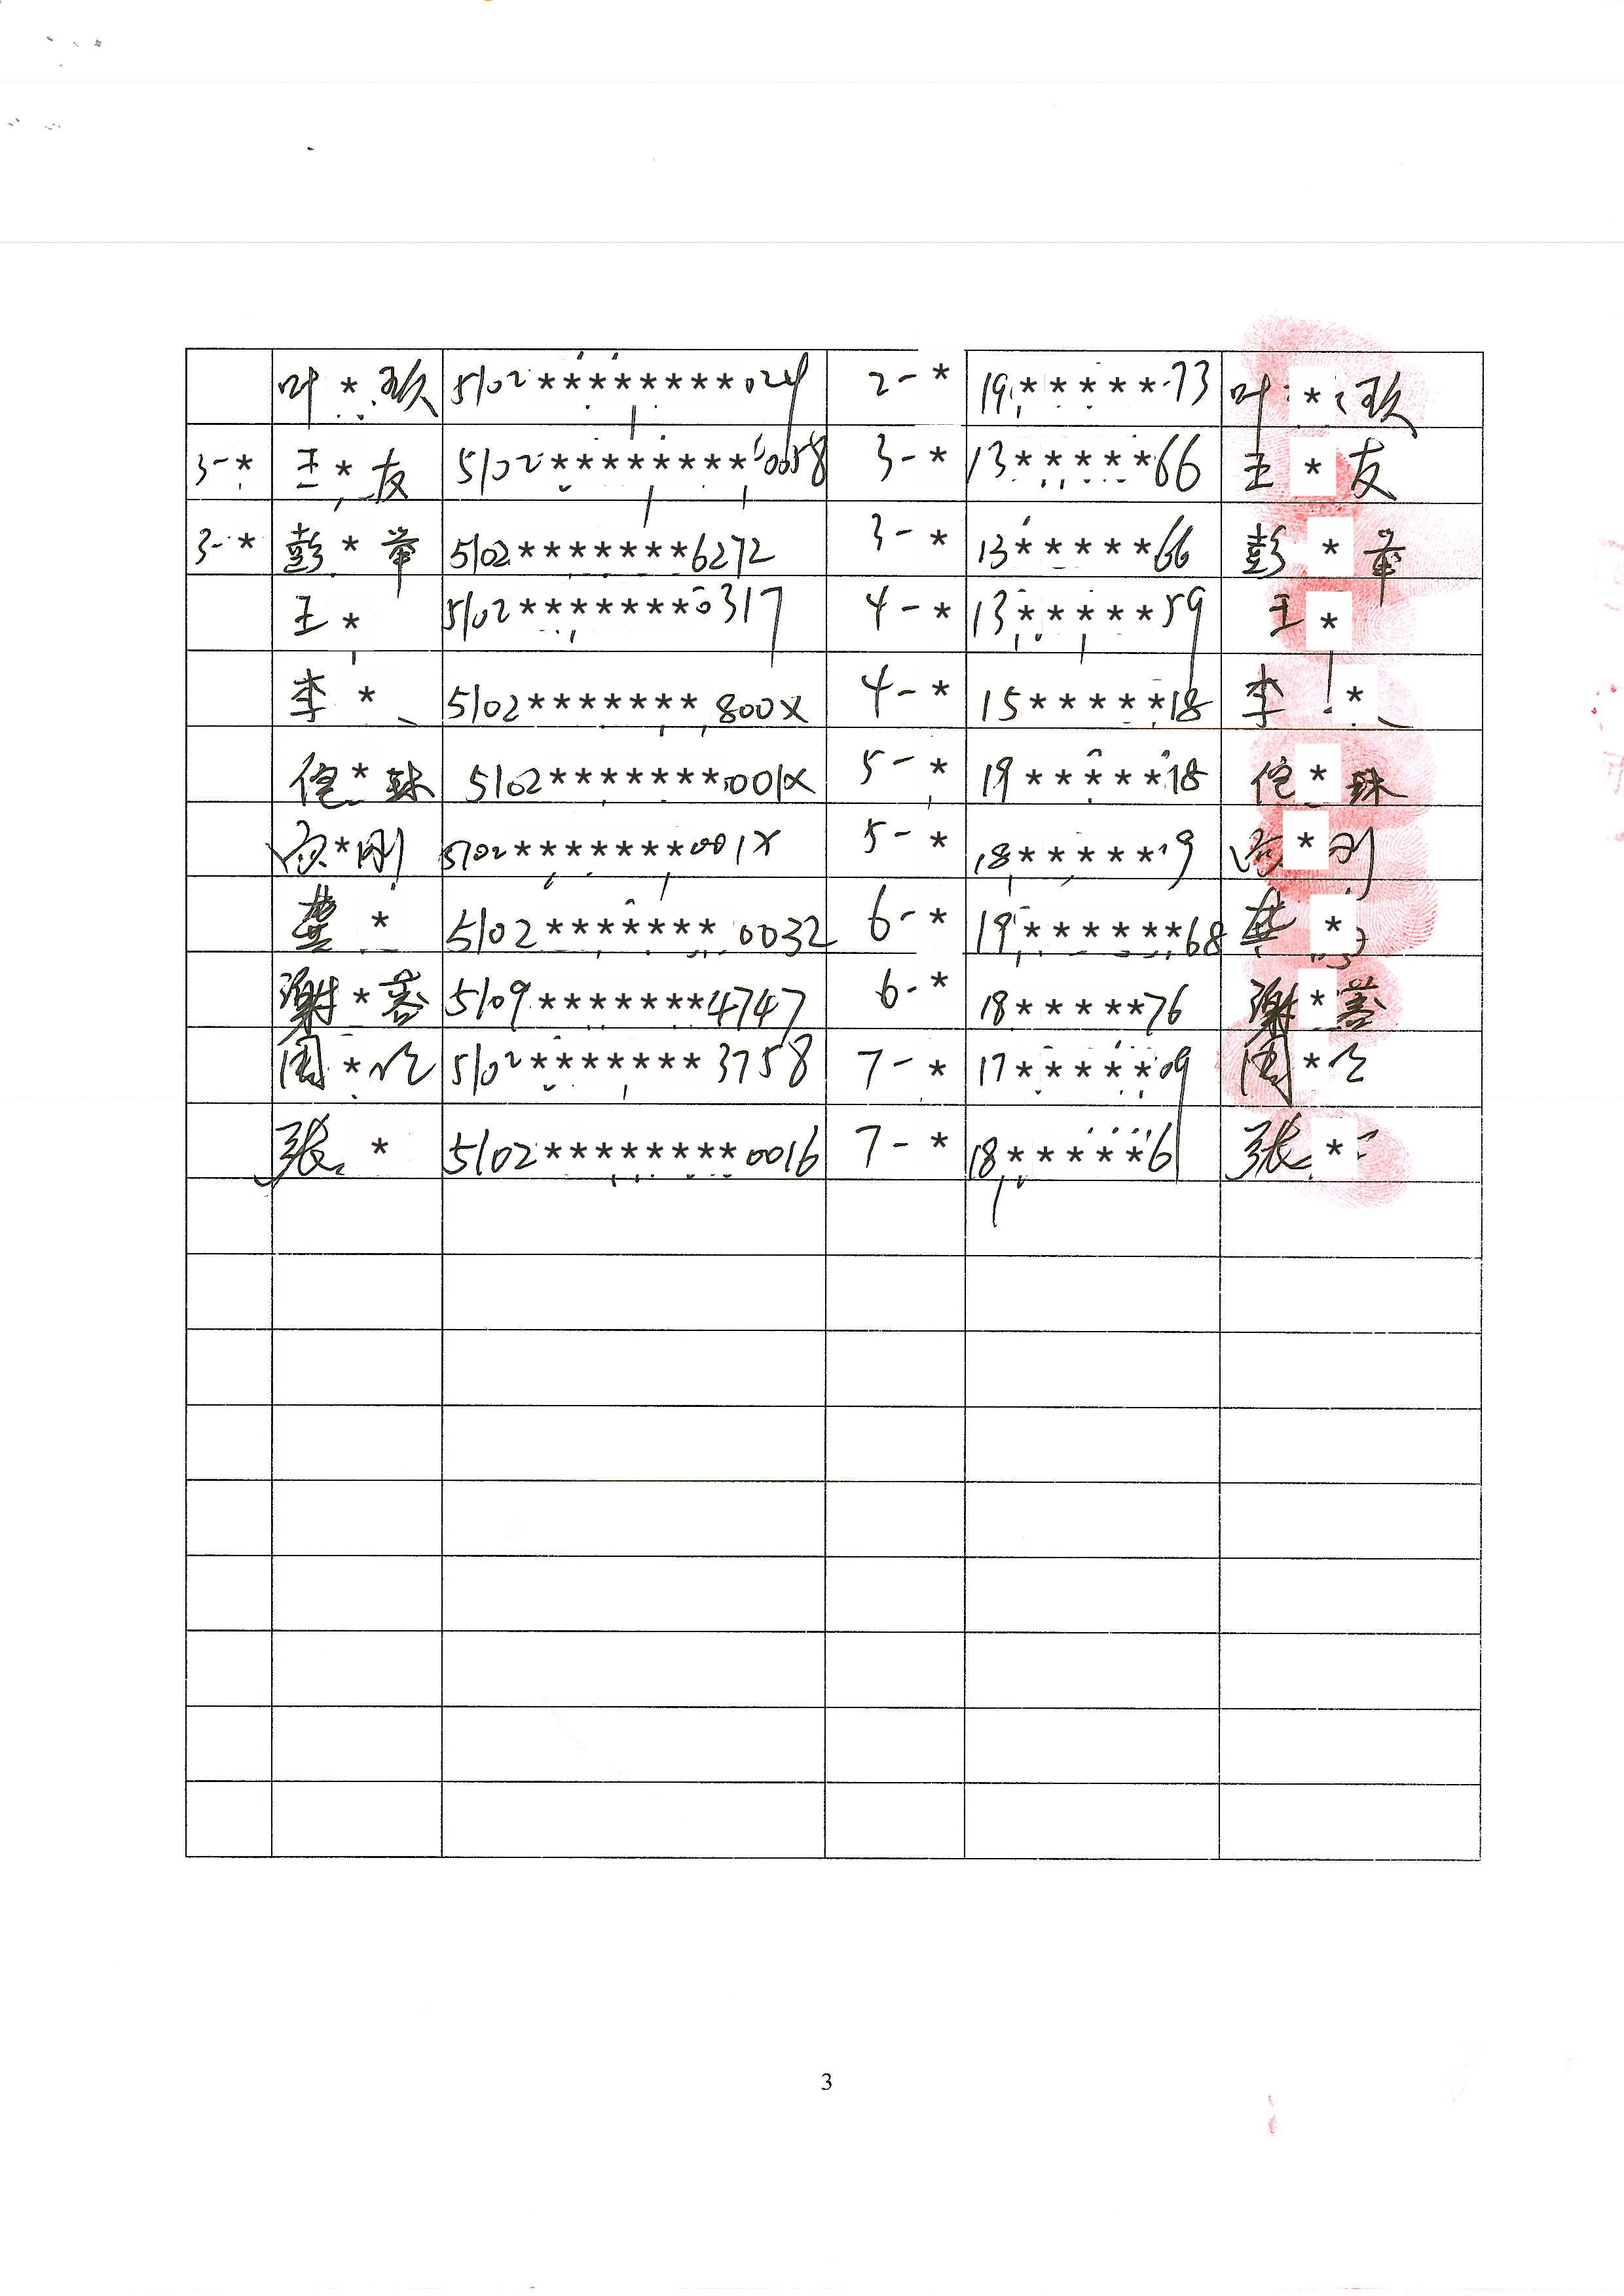 叶*玖 5102********024 2-* 19*****73 叶*玖
3-* 王*友 5102********0058 3-* 13*****66 王*友
3-* 彭*華 5102*******6272 3-* 13*****66 彭*華
王* 5102*******0317 4-* 13*****59 王*
李* 5102*******800X 4-* 15*****18 李*
*珠 5102*******001X 5-* 19*****18 *珠
*刚 5102*******001X 5-* 18*****9 *刚
龚* 5102*******0032 6-* 19******68 龚*
谢*蓉 5109*******4747 6-* 18*****76 谢*蓉
周* 5102*******3758 7-* 17*****09 周*
张* 5102********0016 7-* 18*****6 张*
3